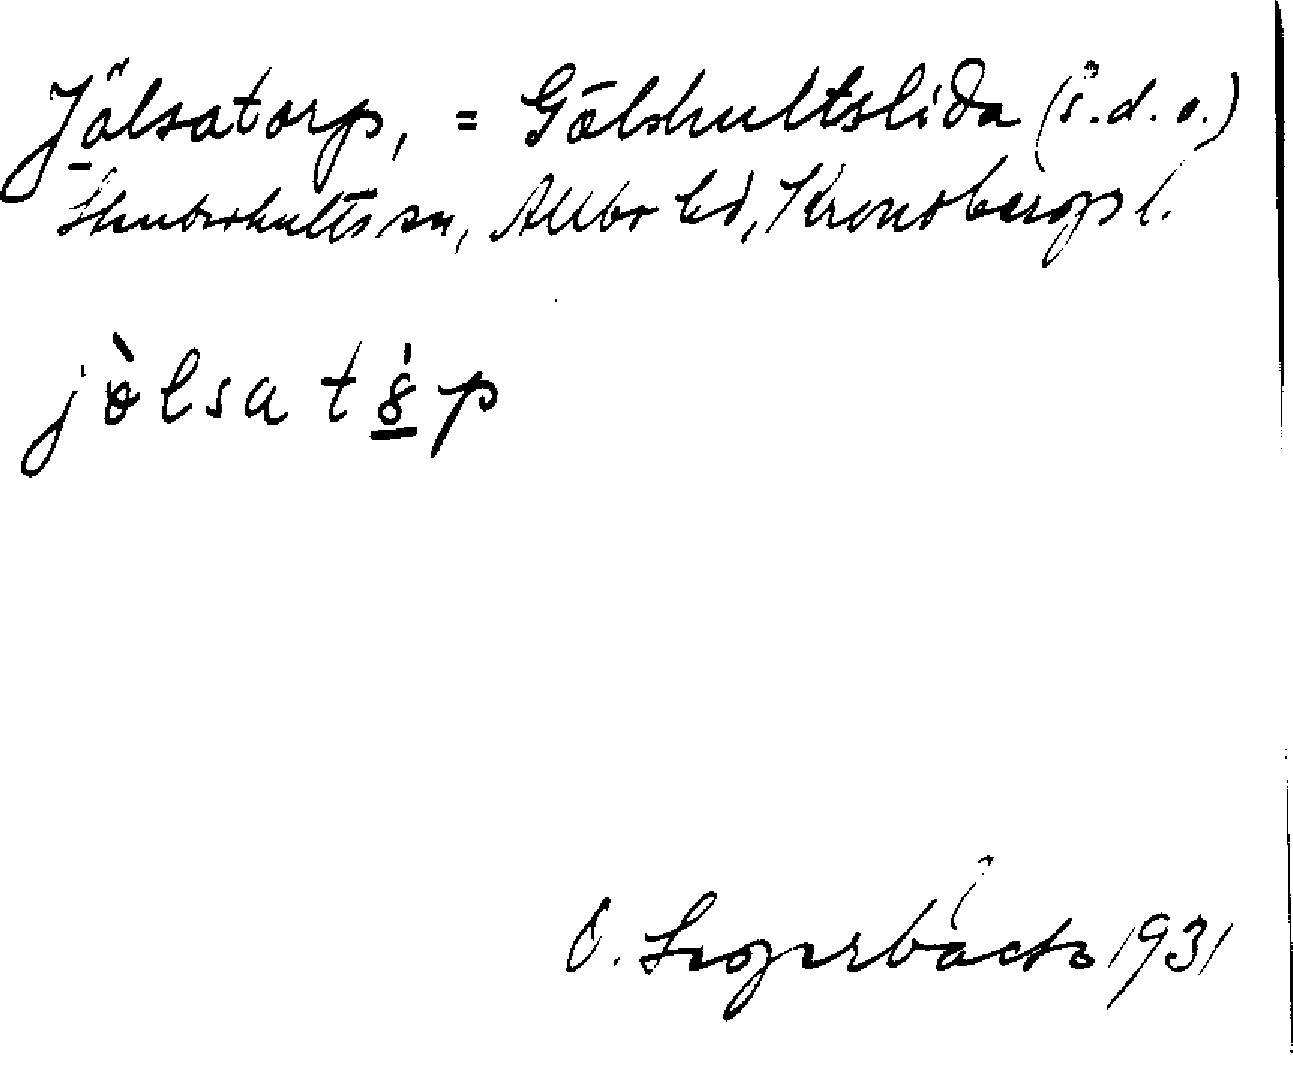 Jölsatorp, = Gölshultslida (s.d.o.)
Skatelövs sn, Allbo hd, Kronobergs l.
jòlsa tȣ́p
O. Lagerbäck 1931